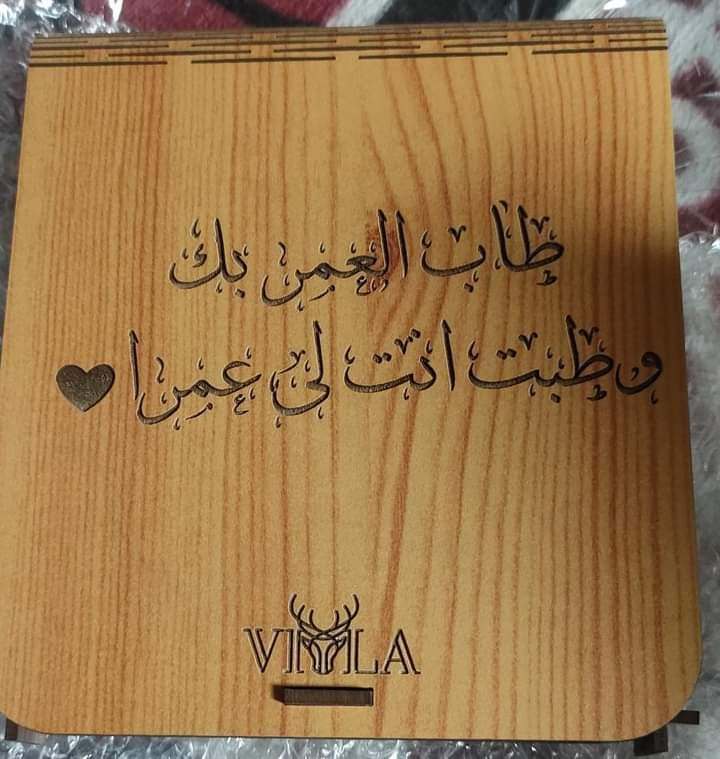 طاب العمر بك
وطبت انت لي عمرا
VIOLA